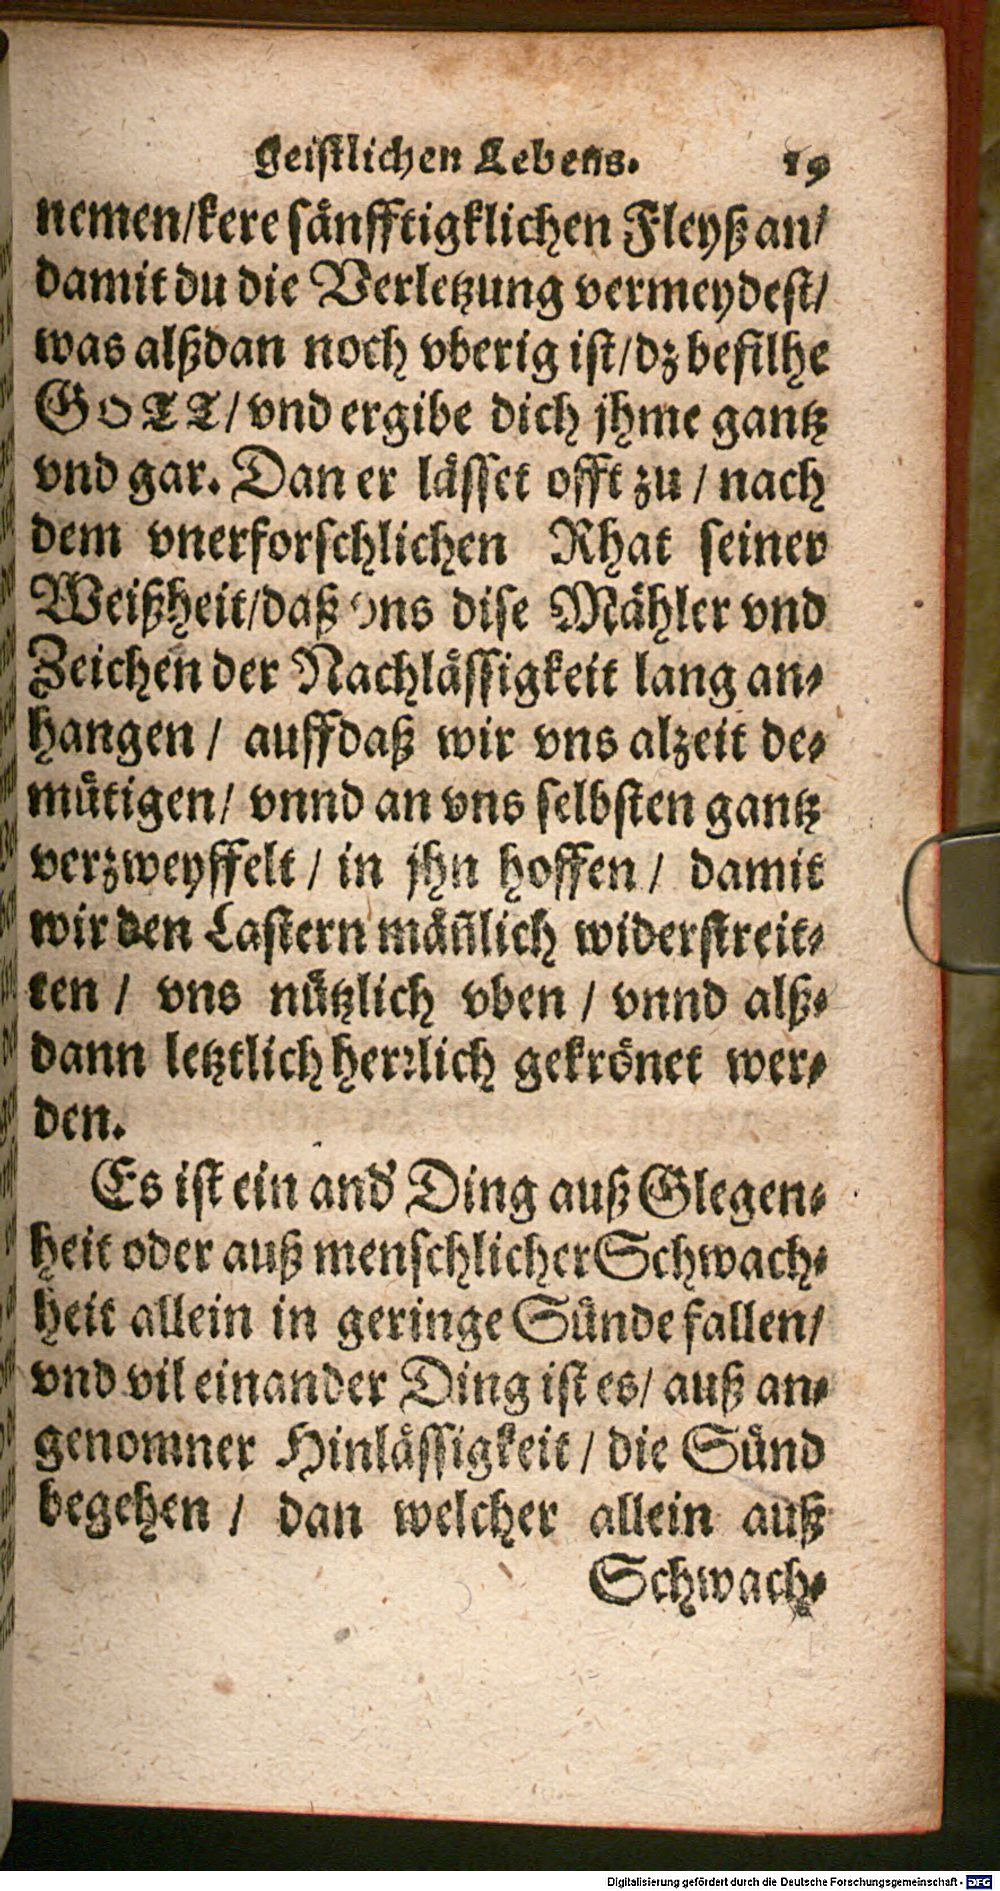 Geistlichen Lebens. 19
nemen/kere sånfftigklichen Fleyß an/
damit du die Verletzung vermeydest/
was alßdan noch vberig ist/dz befilhe
GOTT/vnd ergibe dich jhme gantz
vnd gar. Dan er låsset offt zu / nach
dem vnerforschlichen Rhat seiner
Weißheit/daß vns dise Måhler vnd
Zeichen der Nachlåssigkeit lang an-
hangen / auffdaß wir vns alzeit de-
můtigen/ vnnd an vns selbsten gantz
verzweyffelt / in jhn hoffen / damit
wir den Lastern mån̄lich widerstreit-
ten / vns nůtzlich vben / vnnd alß-
dann letztlich herꝛlich gekrönet wer-
den.
Es ist ein and' Ding auß Glegen-
heit oder auß menschlicher Schwach-
heit allein in geringe Sünde fallen/
vnd vil einander Ding ist es/ auß an-
genomner Hinlåssigkeit / die Sünd
begehen / dan welcher allein auß
Schwach-
Digitalisierung gefördert durch die Deutsche Forschungsgemeinschaft - DFG